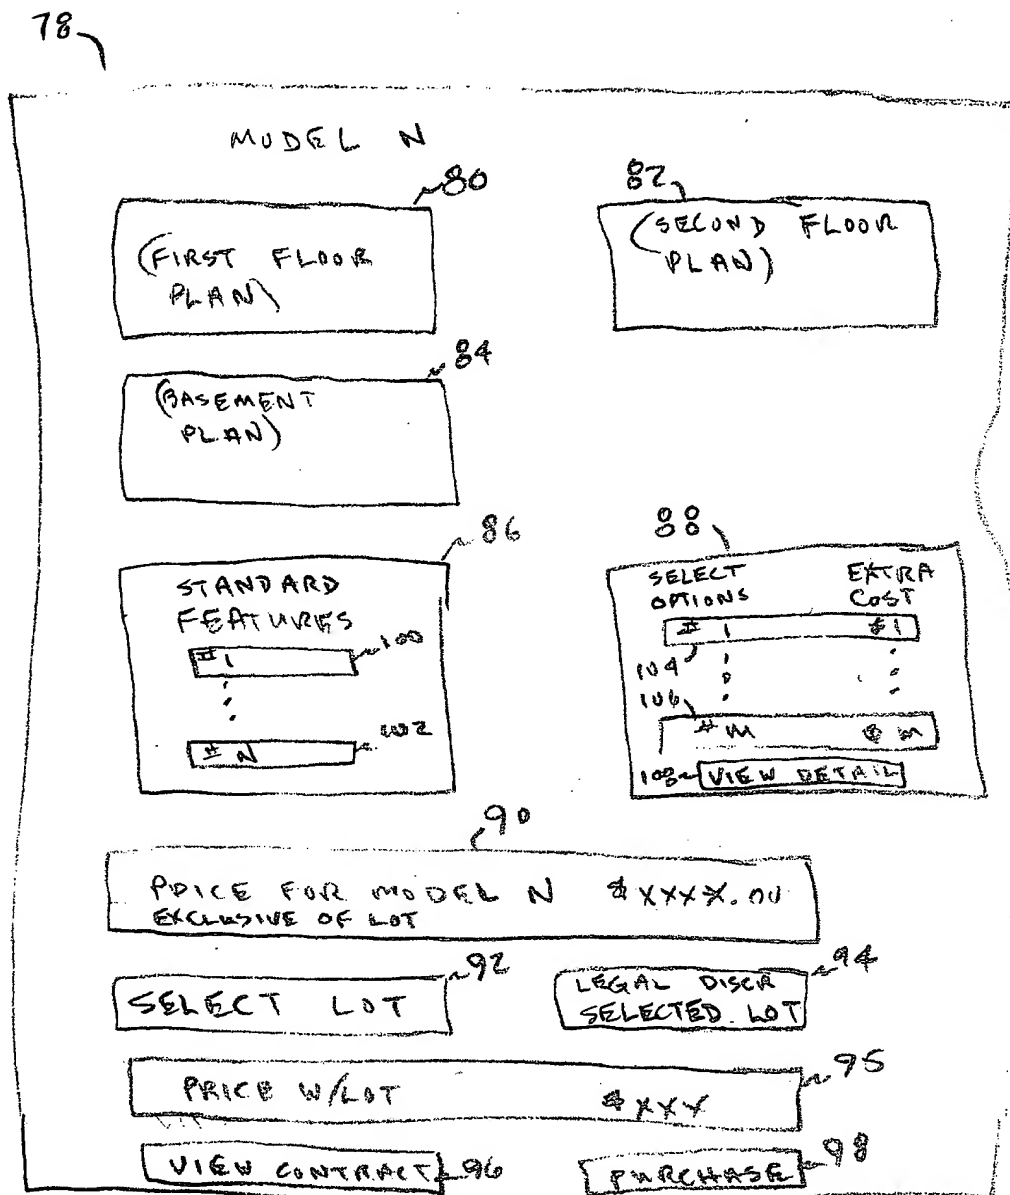 78
MODEL N
80
82
(FIRST FLOOR
PLAN)
(SECOND FLOOR
PLAN)
84
(BASEMENT
PLAN)
86
88
STANDARD
FEATURES
#1
100
#N
102
SELECT
OPTIONS
EXTRA
COST
# 1 $1
104
106
# M $ M
108 VIEW DETAIL
90
PRICE FOR MODEL N $XXXX.00
EXCLUSIVE OF LOT
92
94
SELECT LOT
LEGAL DISCR
SELECTED LOT
95
PRICE W/LOT $XXX
VIEW CONTRACT 96
PURCHASE 98